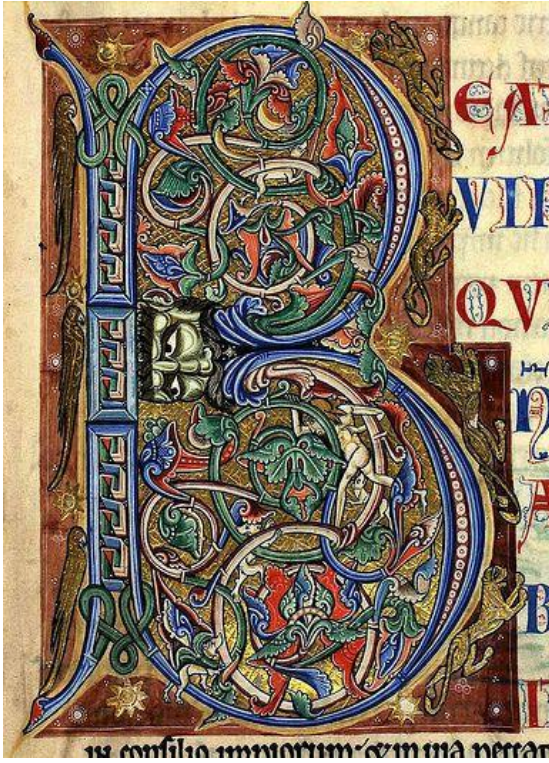 BEA
VI
QV
N
A
B
in consilio impiorum· & in uia peccat